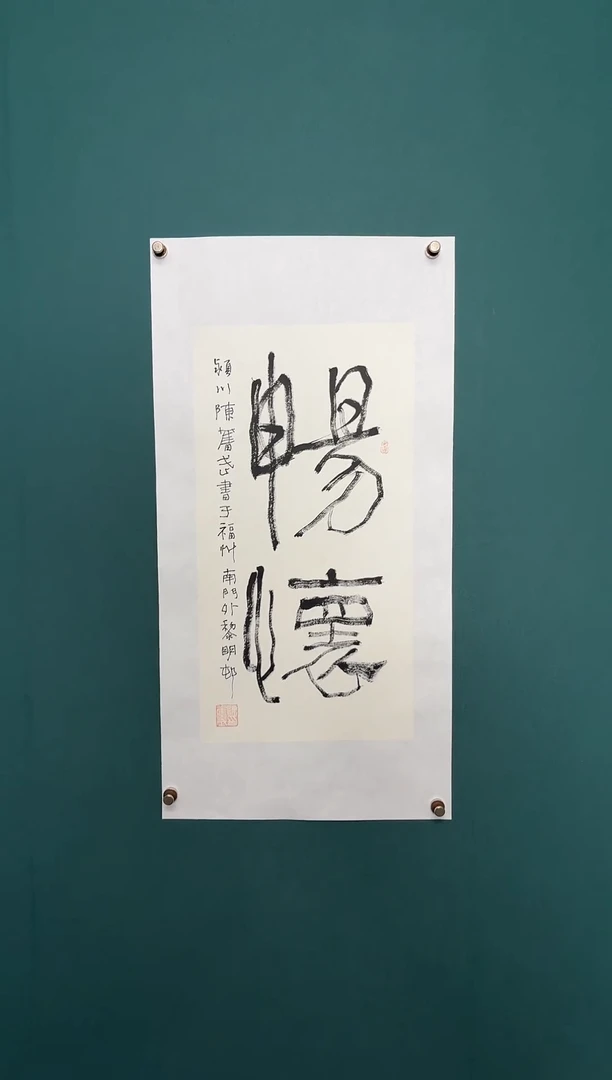 暢懷
潁川陳奮武書于福州南門外黎明邨